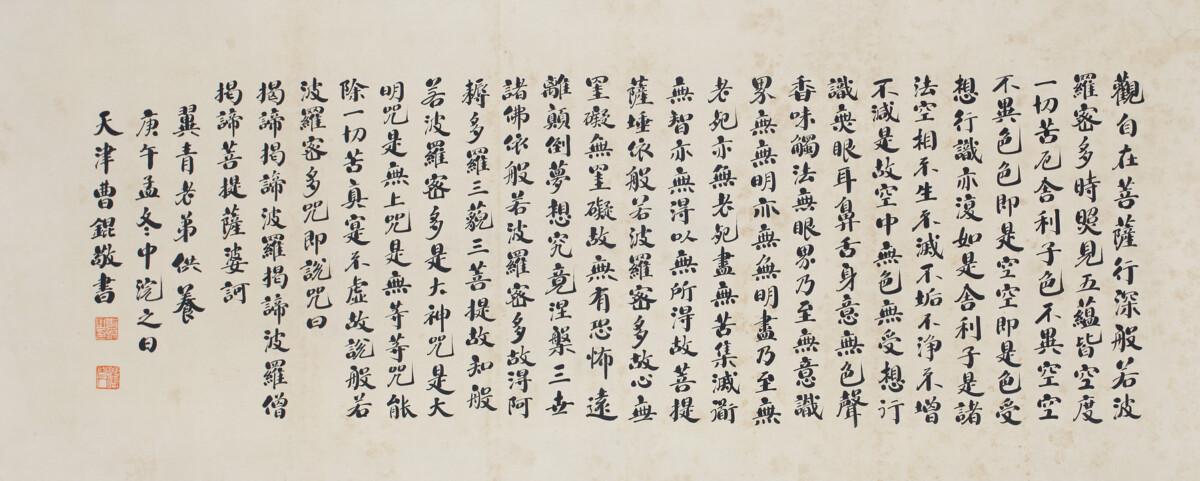 觀自在菩薩行深般若波
羅密多時照見五蘊皆空度
一切苦厄舍利子色不異空空
不異色色即是空空即是色受
想行識亦復如是舍利子是諸
法空相不生不滅不垢不淨不增
不減是故空中無色無受想行
識無眼耳鼻舌身意無色聲
香味觸法無眼界乃至無意識
界無無明亦無無明盡乃至無
老死亦無老死盡無苦集滅道
無智亦無得以無所得故菩提
薩埵依般若波羅密多故心無
罣礙無罣礙故無有恐怖遠
離顛倒夢想究竟涅槃三世
諸佛依般若波羅密多故得阿
耨多羅三藐三菩提故知般
若波羅密多是大神咒是大
明咒是無上咒是無等等咒能
除一切苦真實不虛故說般若
波羅密多咒即說咒曰
揭諦揭諦波羅揭諦波羅僧
揭諦菩提薩婆訶
翼青老弟供養
庚午孟冬中浣之日
天津曹錕敬書